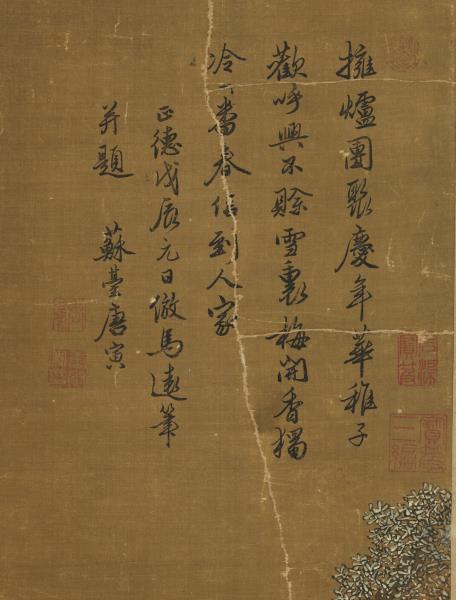 擁爐團聚慶年華稚子
歡呼興不賒雪裏梅開香獨
冷一番春信到人家
正德戊辰元日倣馬遠筆
并題 蘇臺唐寅
石渠寶笈
寶笈三編